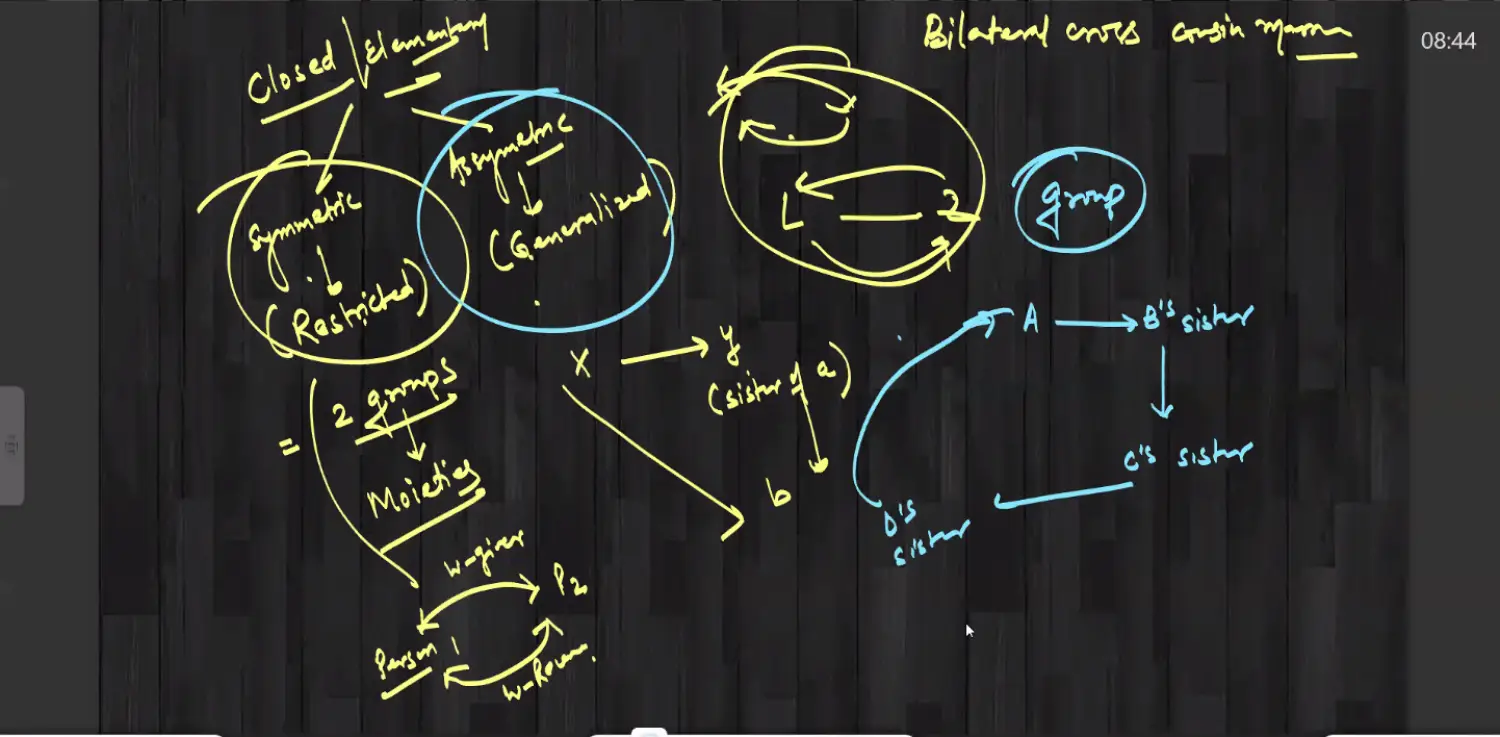 Closed / Elementary
Bilateral cross cousin
08:44
Symmetric
(Restricted)
Assymetric
(Generalized)
L — 2
group
= 2 groups
Moieties
X → y
(sister of a)
b
A → B's sister
C's sister
D's sister
w-giver
P2
Person 1